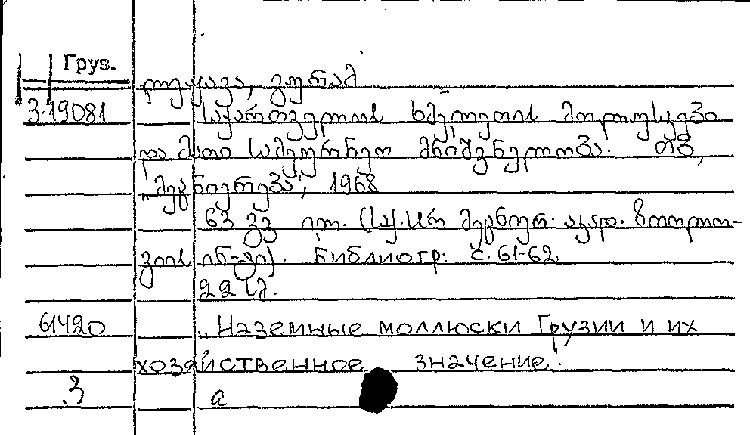 Груз.
ლეჟავა, გურამ
3-19081 საქართველოს ხმელეთის მოლუსკები
და მათი სამეურნეო მნიშვნელობა. თბ.,
„მეცნიერება", 1968
63 გვ. ილ. (საქ. სსრ მეცნიერ. აკად. ზოოლო-
გიის ინ-ტი). Библиогр: с. 61-62.
22 კ.
61420 „Наземные моллюски Грузии и их
хозяйственное значение".
3 а